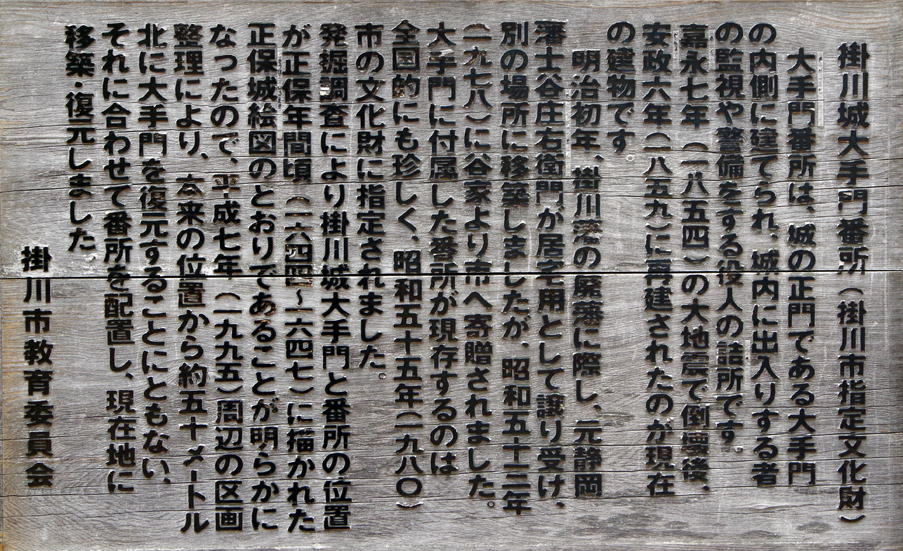 掛川城大手門番所（掛川市指定文化財）
大手門番所は、城の正門である大手門
の内側に建てられ、城内に出入りする者
の監視や警備をする役人の詰所です。
嘉永七年（一八五四）の大地震で倒壊後、
安政六年（一八五九）に再建されたのが現在
の建物です。
明治初年、掛川藩の廃藩に際し、元静岡
藩士谷庄右衛門が居宅用として譲り受け、
別の場所に移築しましたが、昭和五十三年
（一九七八）に谷家より市へ寄贈されました。
大手門に付属した番所が現存するのは
全国的にも珍しく、昭和五十五年（一九八〇）
市の文化財に指定されました。
発掘調査により掛川城大手門と番所の位置
が正保年間頃（一六四四～一六四七）に描かれた
正保城絵図のとおりであることが明らかに
なったので、平成七年（一九九五）周辺の区画
整理により、本来の位置から約五十メートル
北に大手門を復元することにともない、
それに合わせて番所を配置し、現在地に
移築・復元しました。
掛川市教育委員会